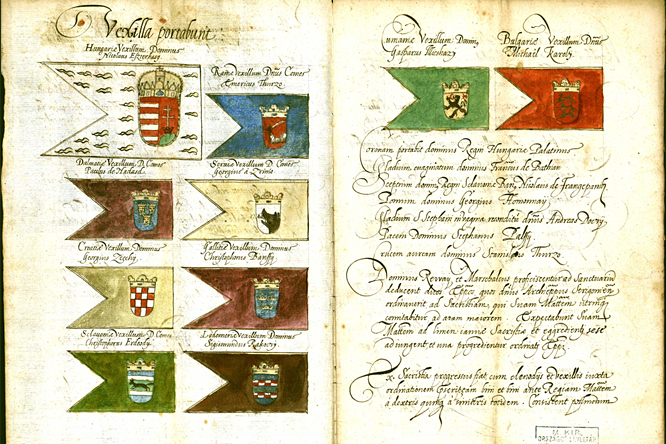 Vexilla portabunt.
Hungariæ Vexillum Dominus
Nicolaus Eszterhazy
Ramæ Vexillum Dnus Comes
Emericus Thurzo
Dalmatiæ Vexillum D. Comes
Paulus de Nadasd
Serviæ Vexillum D. Comes
Georgius à Zrinio
Croatiæ Vexillum Dominus
Georgius Zechy
Galliciæ Vexillum Dominus
Christophorus Banffy
Sclavoniæ Vexillum D. Comes
Christophorus Erdeody
Lodomeriæ Vexillum Dominus
Sigismundus Rakoczy
Cumaniæ Vexillum Domin
Gasparus Illieshazy
Bulgariæ Vexillum Dnus
Michaël Karoly
Coronam portabit dominus Regni Hungariæ Palatinus
Gladium evaginatum dominus Franciscus de Bathian
Sceptrum domin Regni Sclavoniæ Ban Nicolaus de Frangepanib
Pomum dominus Georgius Homonnay
Gladium S Stephani in vagina reconditum dominus Andreas Doczy
Pacem Dominus Stephanus Palffy
Crucem auream dominus Stanislaus Thurzo
Dominus Revay et Marschalus proficiscentur ad Sanctuarium
deducent duos quos dnus Archiepus
ordinaverit ad Sacristiam, qui Suam Mattem
comitabitur ad aram maiorem. Expectabunt Suam
Mattem ad limen ianuæ Sacristiæ et egredienti sese
adiungent et una progredientur ordinati
Ex Sacristia progressus fiat cum elenatis de vexillis iuxta
ordinationem bini et bini ante Regiam Mattem
à dextris quinque à sinistris totidem. Consistent
M. KIR.
ORSZÁGOS LEVÉLTÁR